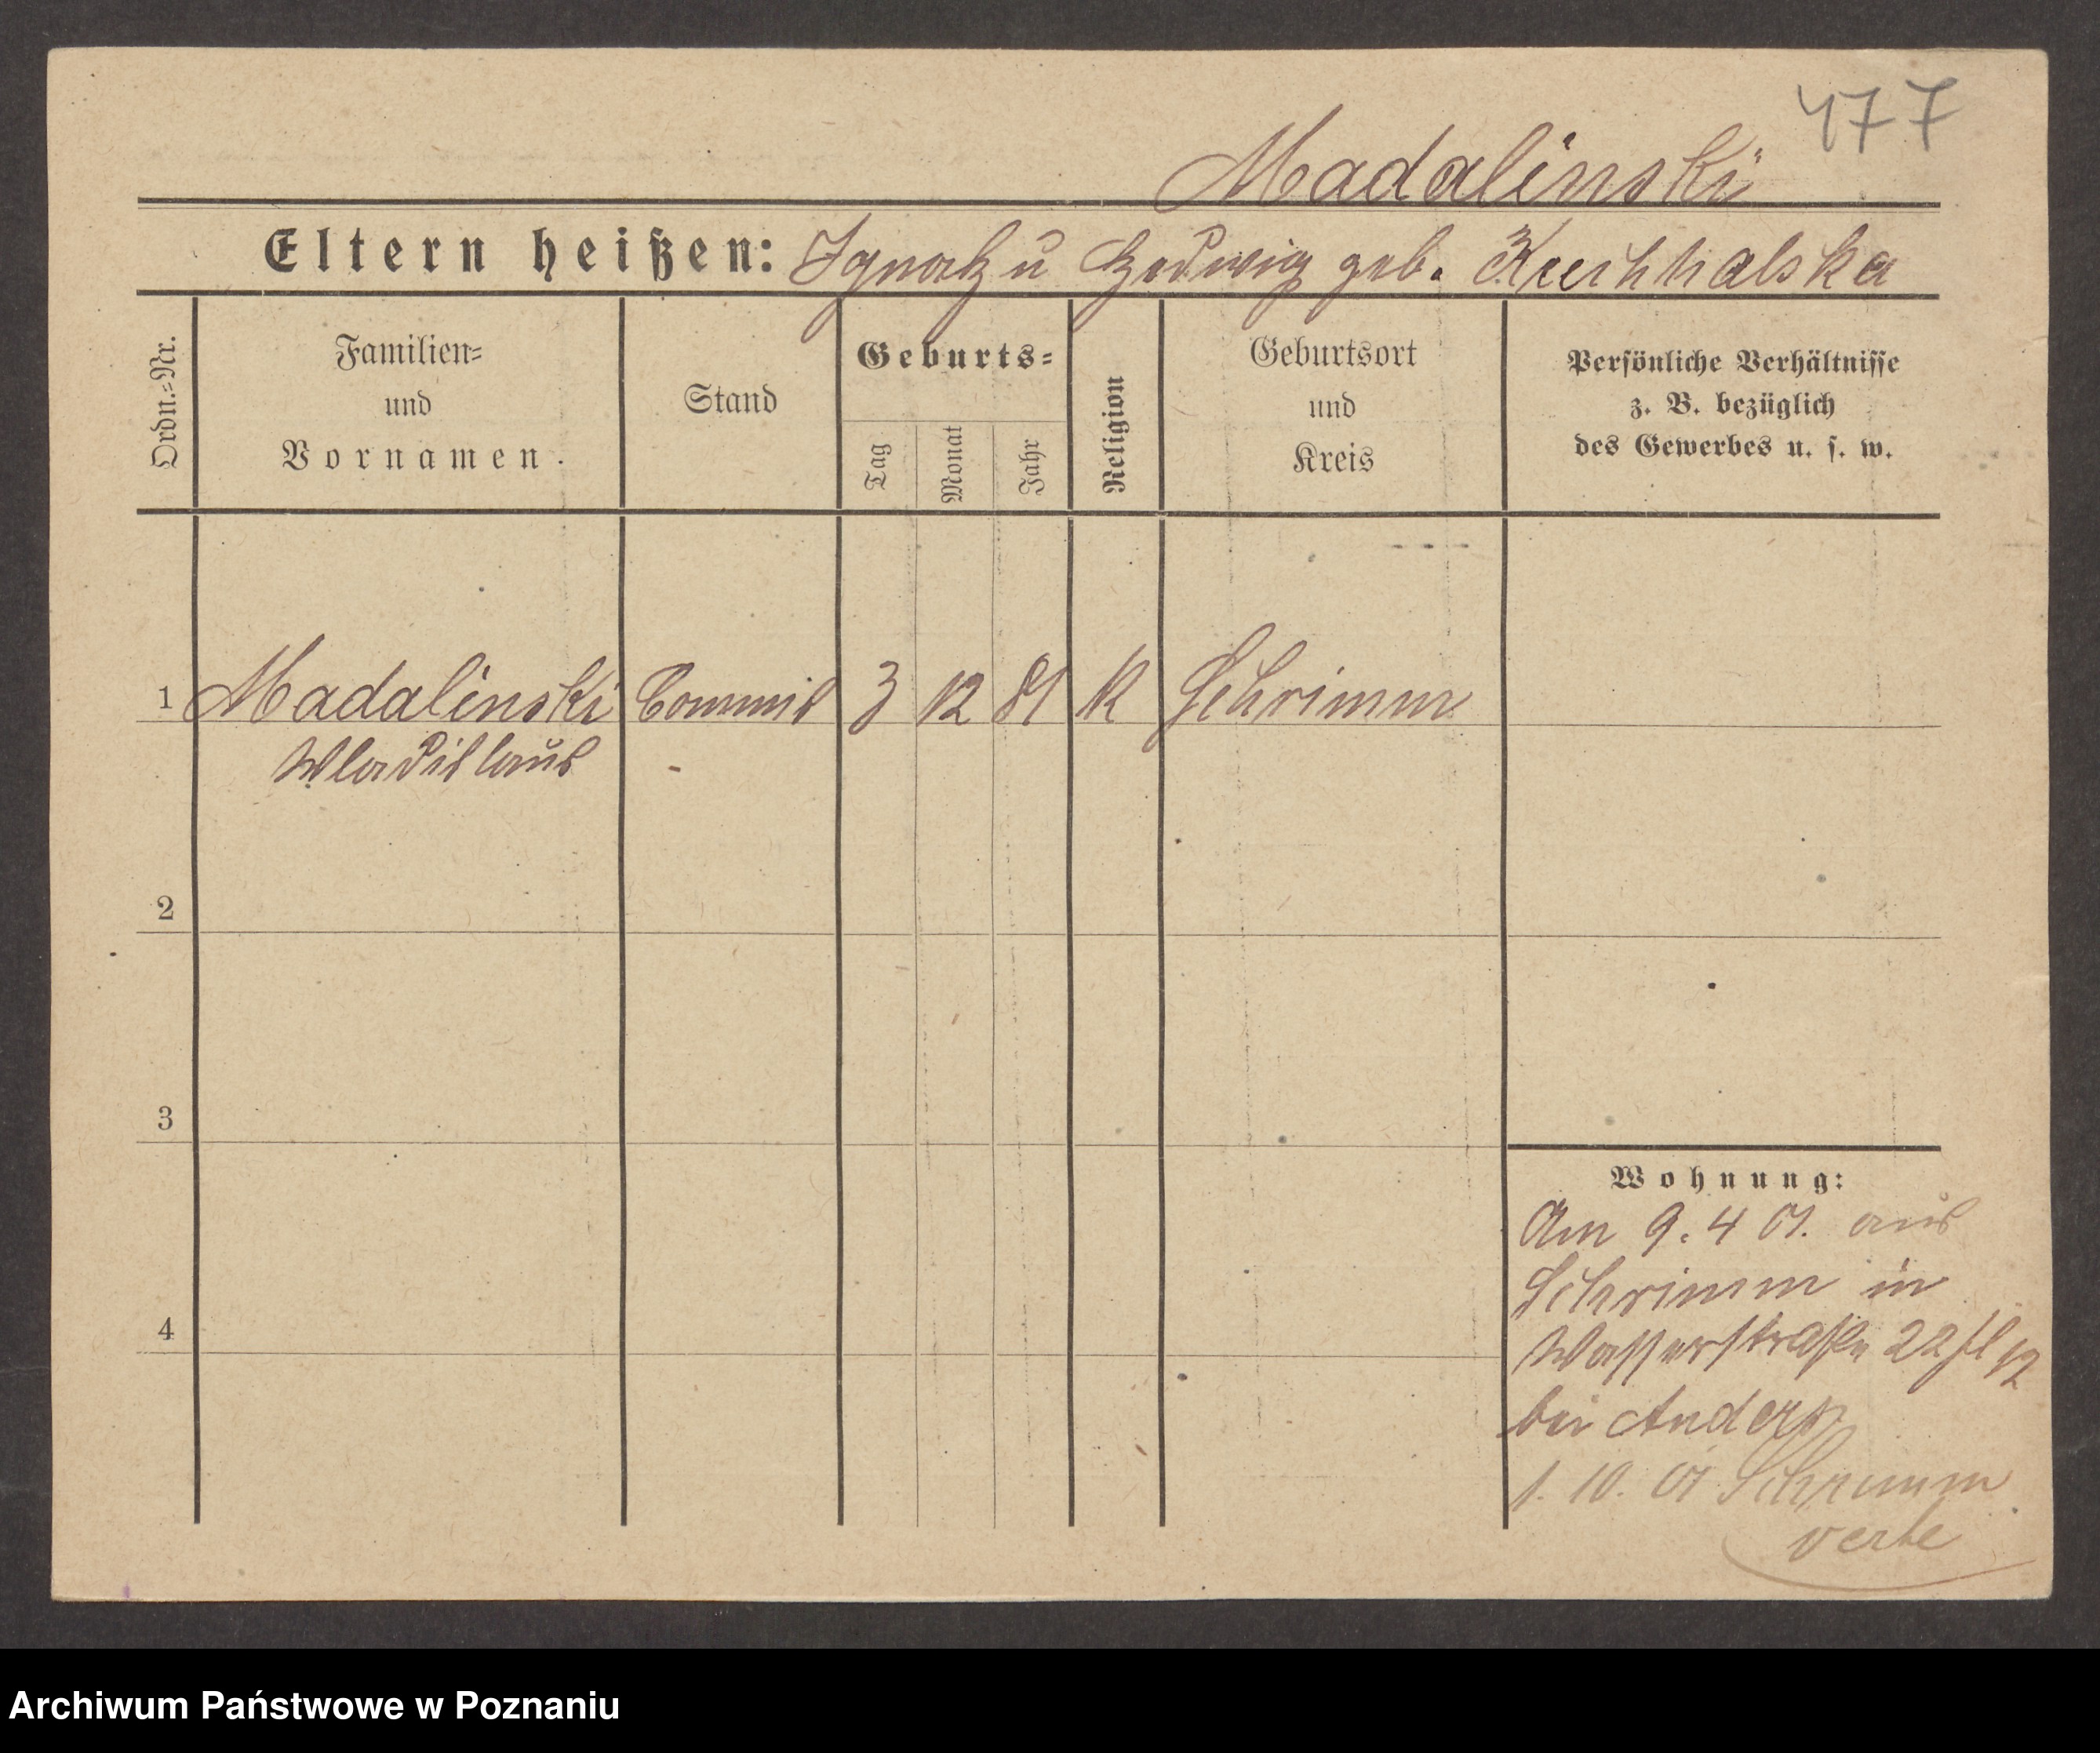 477
Madalinski
Eltern heißen: Ignatz u Hedwig geb.
Ordn.=Nr.
Familien=
und
Vornamen.
Stand
Geburts=
Tag
Monat
Jahr
Religion
Geburtsort
und
Kreis
Persönliche Verhältnisse
z. B. bezüglich
des Gewerbes u. s. w.
1 Madalinski Commis 3 12 81 K Schrimm
Wladislaus
2
3
4
Wohnung:
Am 9. 4 01. aus
Schrimm in
Wasserstraße 22
bei Anders
1. 10. 01 Schrimm
verte
Archiwum Państwowe w Poznaniu